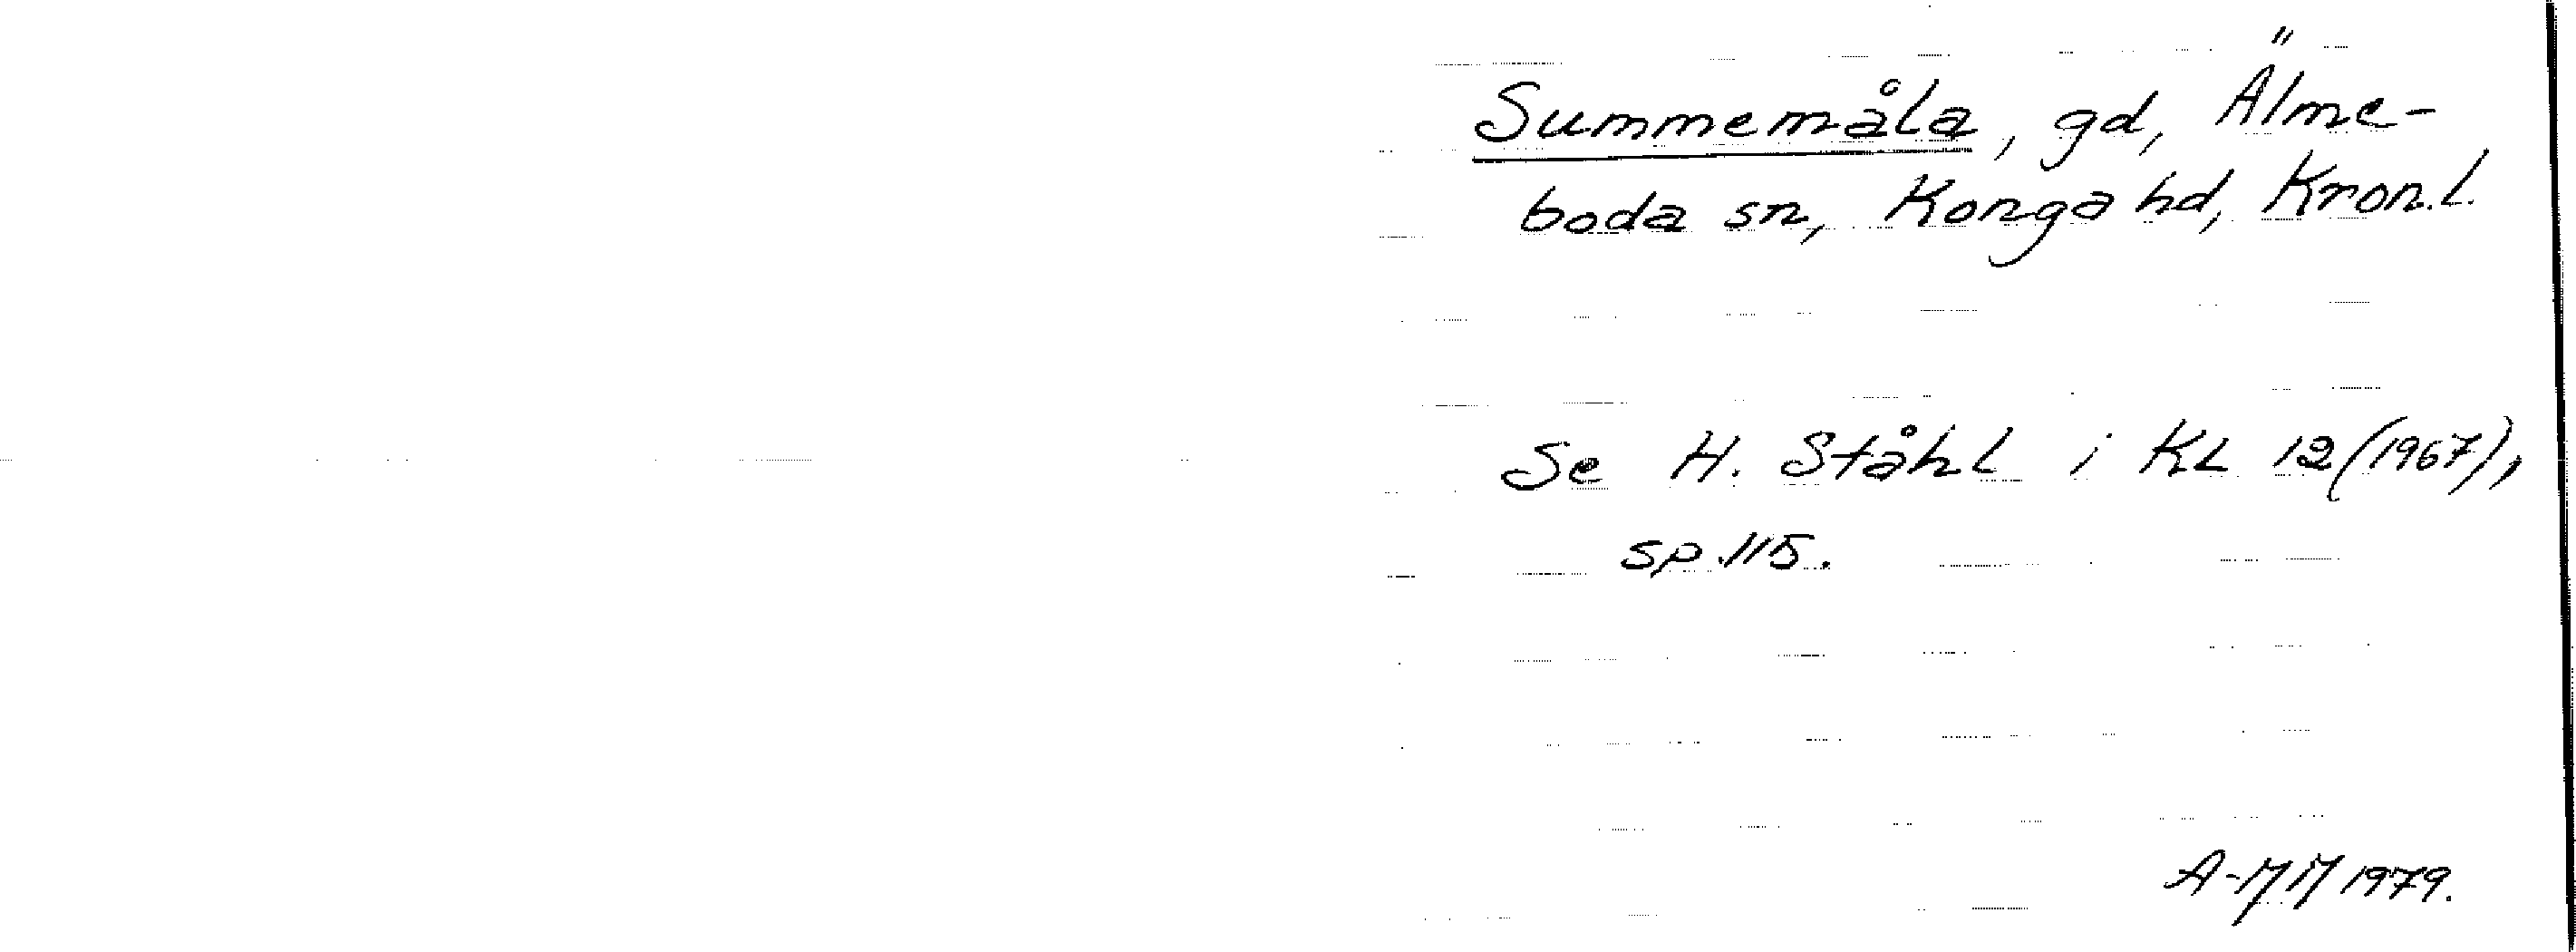 Summemåla, gd, Älme-
boda sn, Konga hd, Kron.l.
Se H. Ståhl i KL 12 (1967),
sp. 115.
A-MM 1979.